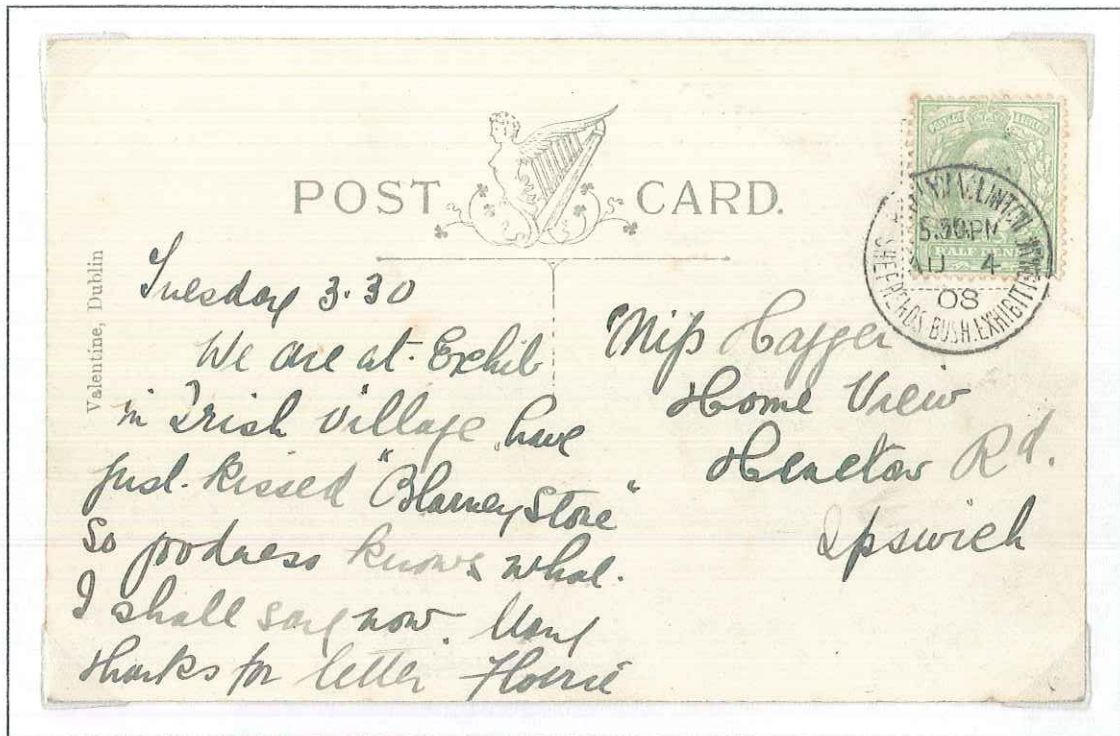 POST CARD.
Valentine, Dublin
Tuesday 3.30
We are at Exhib
in Irish Village have
just kissed "Blarney Stone"
So goodness knows what
I shall say now. Many
thanks for letter Florrie
Miss
Home View
Rd.
Ipswich
BALLYMACLINTON
5.30.PM
AU 4
08
SHEPHERDS BUSH.EXHIBITION